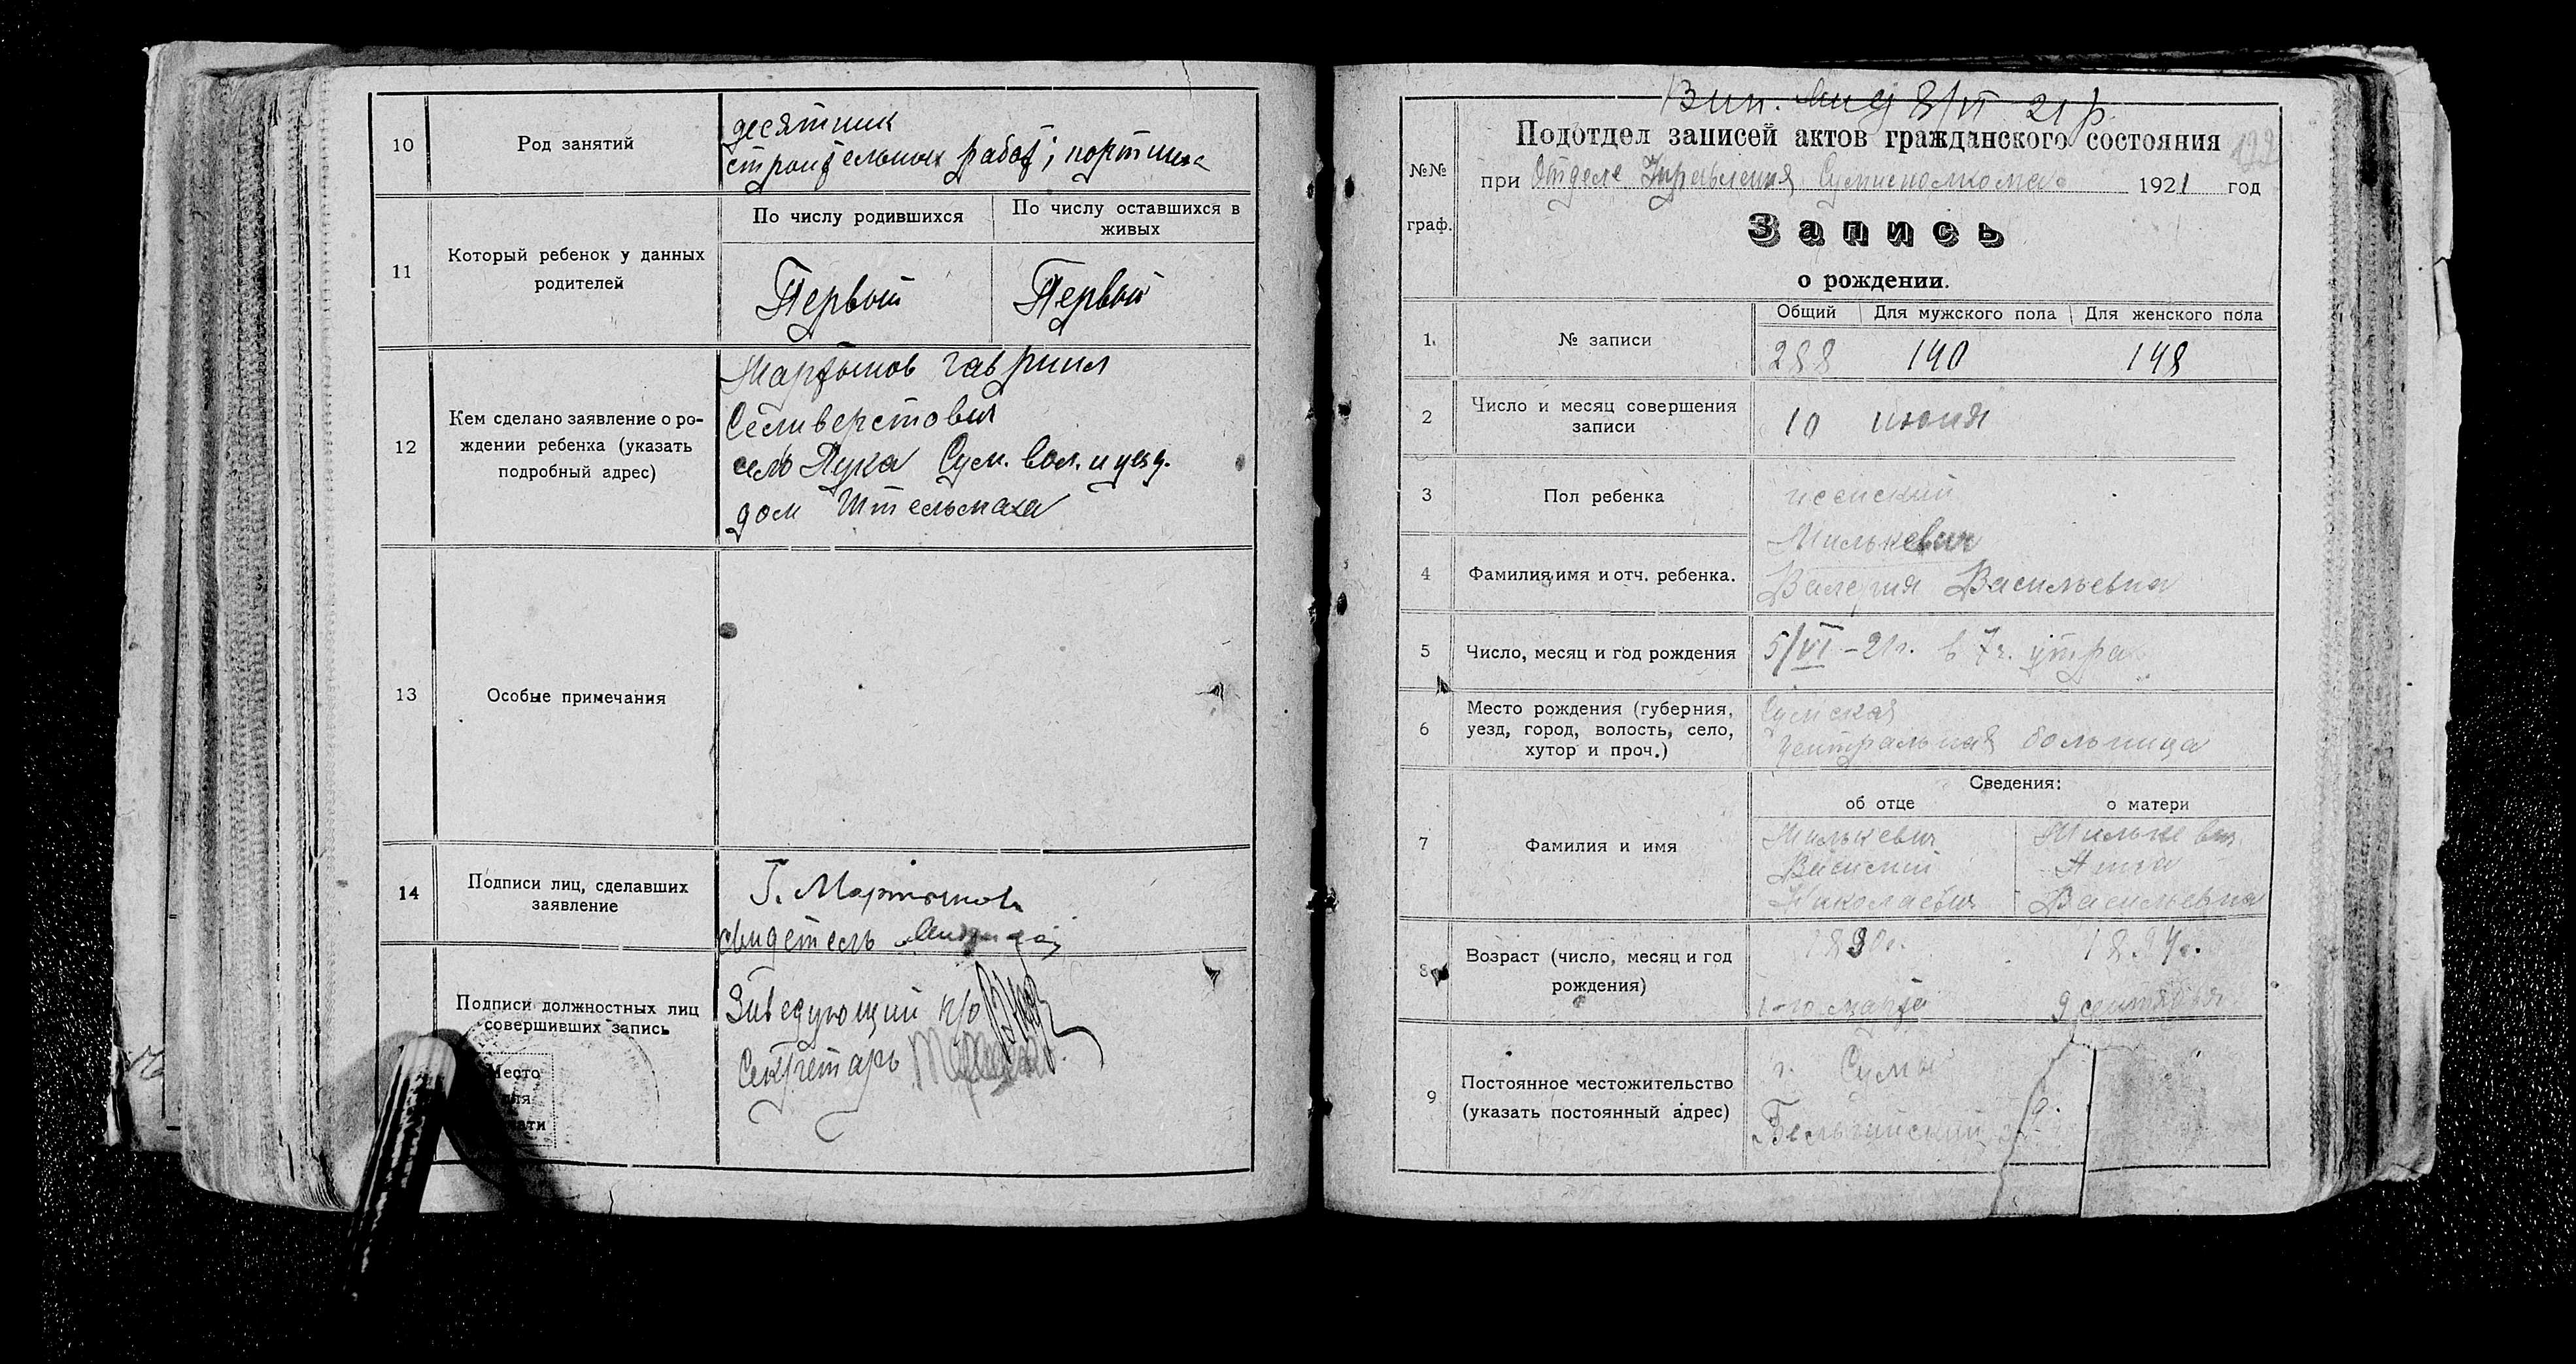 10
Род занятий
десятник
строительных работ; портниха
11
Который ребенок у данных
родителей
По числу родившихся
По числу оставшихся в
живых
Первый
Первый
12
Кем сделано заявление о ро-
ждении ребенка (указать
подробный адрес)
Мартынов Гавриил
Селиверстович
село Лука Сум. вол. и уезд.
дом Штельмаха
13
Особые примечания
14
Подписи лиц, сделавших
заявление
Г. Мартынов
свидетель
Подписи должностных лиц
совершивших запись
Место
для
Заведующий п/о
Секретарь
Вип. 8/VI 21 р.
№№
граф.
Подотдел записей актов гражданского состояния
122
при Отделе Управления Сумисполкома 1921 год
Запись
о рождении.
1.
№ записи
Общий
Для мужского пола
Для женского пола
288
140
148
2
Число и месяц совершения
записи
10 июня
3
Пол ребенка
женский
4
Фамилия, имя и отч. ребенка.
Милькевич
Валерия Васильевна
5
Число, месяц и год рождения
5/VI – 21 г. в 7 ч. утра
6
Место рождения (губерния,
уезд, город, волость, село,
хутор и проч.)
Сумская
центральная больница
Сведения:
об отце
о матери
7
Фамилия и имя
Милькевич
Василий
Николаевич
Милькевич
Анна
Васильевна
8
Возраст (число, месяц и год
рождения)
1-го марта
1894 г.
9 сентября
9
Постоянное местожительство
(указать постоянный адрес)
г. Сумы
Бельгийский